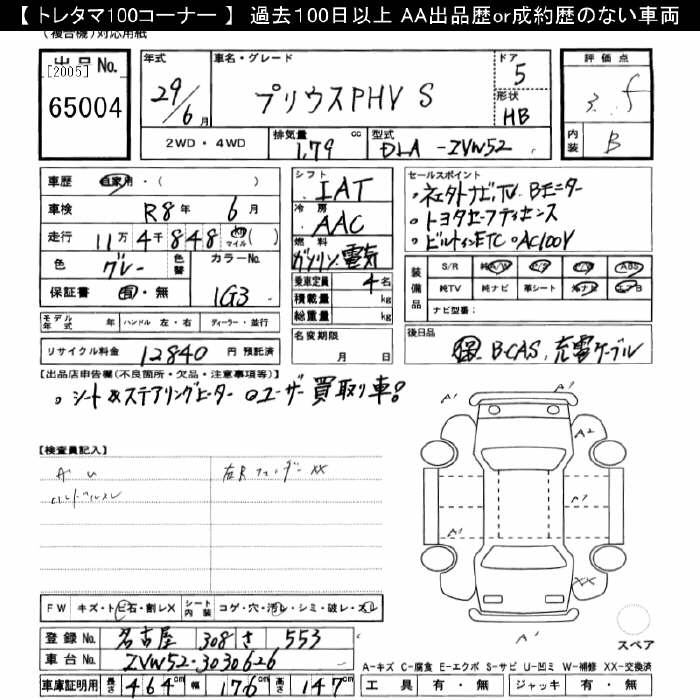 【 トレタマ100コーナー 】 過去100日以上 AA出品歴or成約歴のない車両
(複合機)対応用紙
出品 No.
[2005]
65004
年式
29/6月
車名・グレード
プリウスPHV S
ドア
5
形状
HB
評価点
3. f
内装
B
2WD・4WD
排気量
1.79 cc
型式
DLA-ZVW52
車歴 自家用・( )
車検 R8年 6月
走行 11万4千848 km マイル( )
色 グレー
色替
カラーNo.
1G3
保証書 有・無
シフト
IAT
冷房
AAC
燃料
ガソリン、電気
乗車定員 4名
積載量 kg
総重量 kg
セールスポイント
・ネェクトナビ,TV Bモニター
・トヨタセーフティセンス
・ビルトインETC ・AC100V
装備品
S/R 純A/W P/S P/W ABS
純TV 純ナビ 革シート 社ナビ エアB
ナビ型番:
モデル年式 年 ハンドル 左・右 ディーラー・並行
リサイクル料金 12840 円 預託済
名変期限
月 日
後日品
保 B-CAS, 充電ケーブル
【出品店申告欄(不良箇所・欠品・注意事項等)】
・シート&ステアリングヒーター ・ユーザー買取り車!
【検査員記入】
A U
右Rフェンダー XX
A'
A'
A2
A'
A'
A'
XX
A'
スペア
FW キズ・トビ石・割レX シート内装 コゲ・穴・汚レ・シミ・破レ・スレ
登録 No. 名古屋 308 さ 553
車台 No. ZVW52-3030626
車庫証明用 長さ 464cm 幅 176cm 高さ 147cm
A-キズ C-腐食 E-エクボ S-サビ U-凹ミ W-補修 XX-交換済
工具 有・無 ジャッキ 有・無